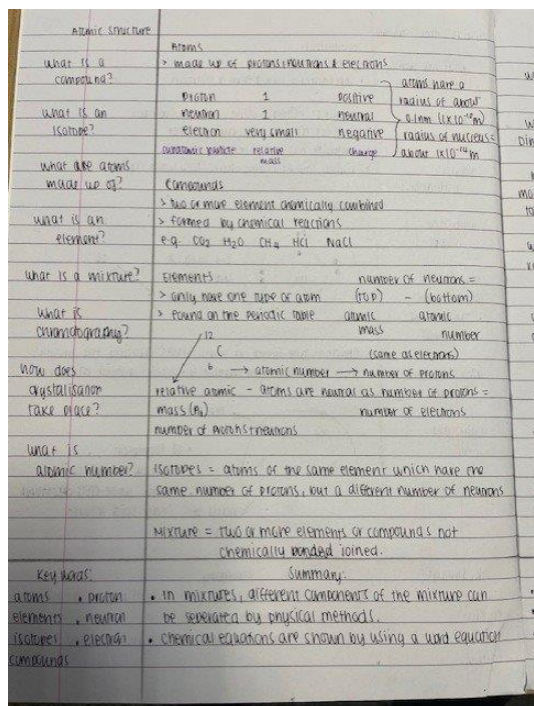 Atomic Structure
what is a
compound?
what is an
isotope?
what are atoms
made up of?
what is an
element?
what is a mixture?
what is
chromatography?
how does
crystalisation
take place?
what is
atomic number?
Atoms
> made up of protons, neutrons & electrons
proton 1 positive
neutron 1 neutral
electron very small negative
subatomic particle relative mass charge
atoms have a
radius of about
0.1nm (1x10⁻¹⁰m)
radius of nucleus =
about 1x10⁻¹⁴m
Compounds
> two or more element chemically combined
> formed by chemical reactions
e.g. CO₂ H₂O CH₄ HCl NaCl
Elements
> only have one type of atom
> found on the periodic table
number of neutrons =
(top) - (bottom)
atomic atomic
mass number
(same as electrons)
12
C
6 → atomic number → number of protons
relative atomic - atoms are neutral as number of protons =
mass (Aᵣ) number of electrons
number of protons+neutrons
isotopes = atoms of the same element which have the
same number of protons, but a different number of neutrons
Mixture = two or more elements or compounds not
chemically bonded joined.
Key words:
atoms • proton
elements • neutron
isotopes • electron
compounds
Summary:
• in mixtures, different components of the mixture can
be seperated by physical methods.
• chemical equations are shown by using a word equation